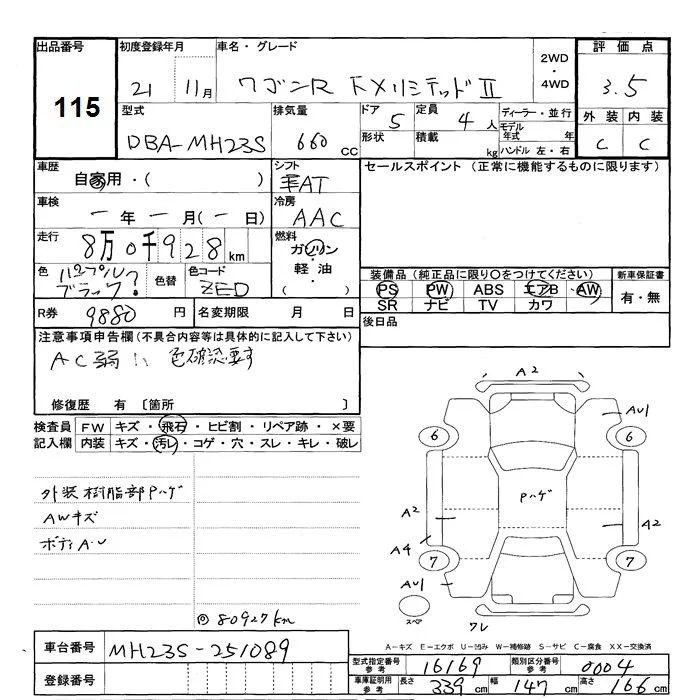 出品番号 初度登録年月 車名・グレード 2WD ・ 4WD 評価点
115 21 11月 ワゴンR FXリミテッドⅡ 3.5
型式 排気量 ドア 定員 ディーラー・並行 外装 内装
DBA-MH23S 660 cc 5 4人 モデル年式 年 C C
形状 積載 kg ハンドル 左・右
車歴 シフト セールスポイント (正常に機能するものに限ります)
自家用・( ) AT
車検 冷房
一年一月(一日) AAC
走行 燃料
8万0千928km ガソリン
色 色替 色コード 軽油 装備品 (純正品に限り○をつけてください) 新車保証書
ブラック? ZED ・( ) PS PW ABS エアB AW 有・無
SR ナビ TV カワ
R券 9880円 名変期限 月 日 後日品
注意事項申告欄 (不具合内容等は具体的に記入して下さい)
AC弱い 色確認要す
修復歴 有 〔箇所 〕
検査員 FW キズ・飛石・ヒビ割・リペア跡・×要
記入欄 内装 キズ・汚レ・コゲ・穴・スレ・キレ・破レ
外装樹脂部Pハゲ
AWキズ
ボディA・U
@80927km
A2
AU1
6 6
Pハゲ
A2 A2
A4
7 7
AU1
スペア
ワレ
A-キズ E-エクボ U-凹み W-補修跡 S-サビ C-腐食 XX-交換済
車台番号 MH23S-251089
登録番号
型式指定番号 参考 16169 類別区分番号 参考 0004
車庫証明用 参考 長さ 339cm 幅 147cm 高さ 166cm